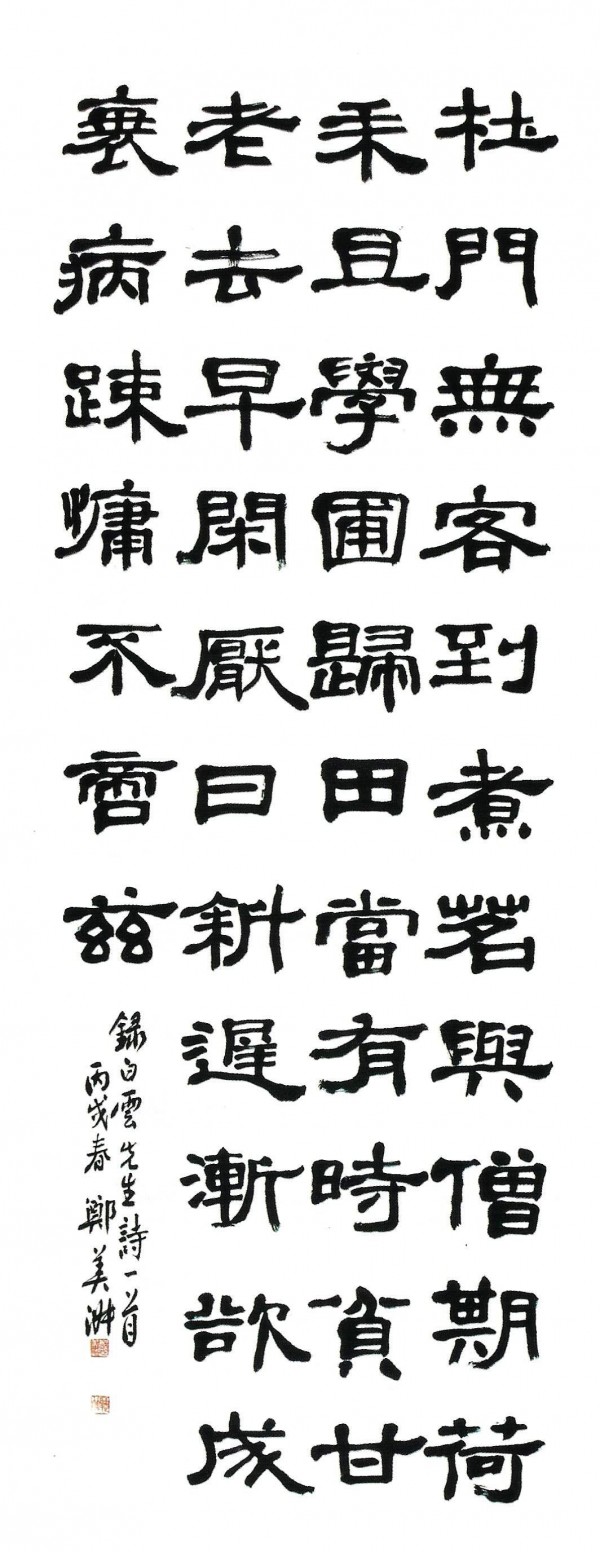 杜門無客到煮茗與僧期荷
耒且學圃歸田當有時貧甘
老去早閑厭日斜遲漸欲成
衰病踈慵不啻茲
錄白雲先生詩一首
丙戌春 鄭美